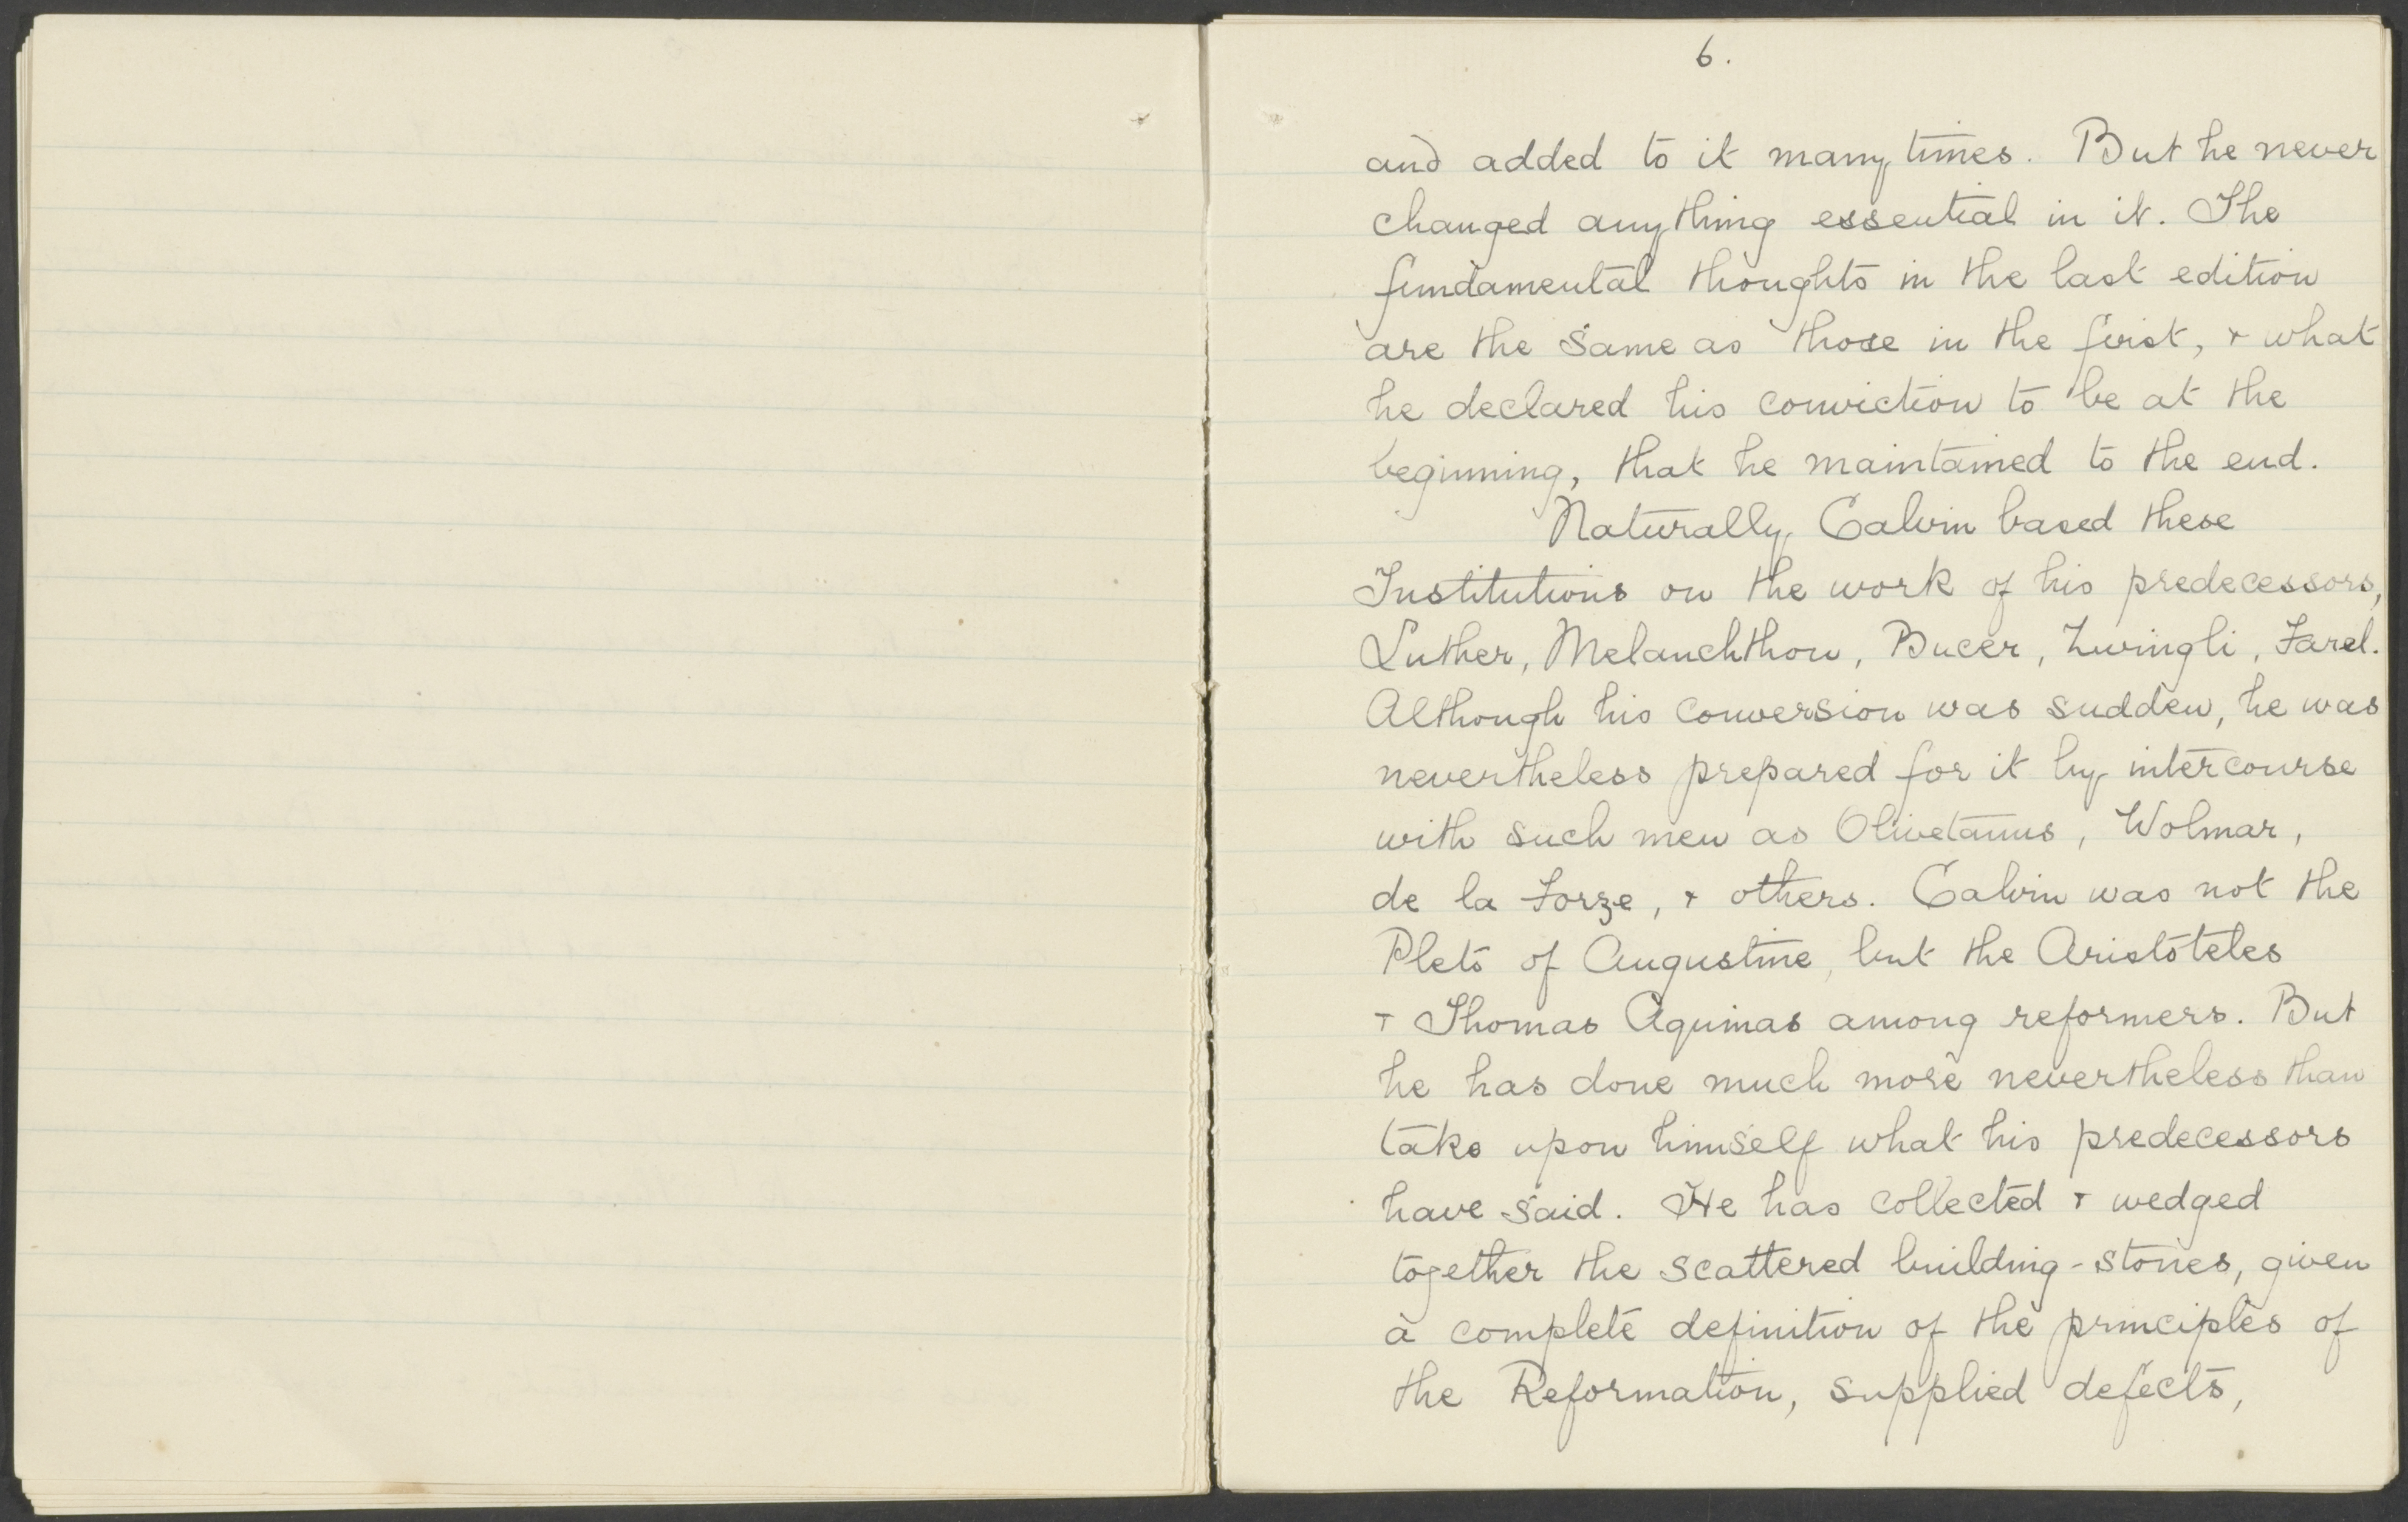 6.
and added to it many times. But he never
changed anything essential in it. The
fundamental thoughts in the last edition
are the same as those in the first, & what
he declared his conviction to be at the
beginning, that he maintained to the end.
Naturally Calvin based these
Institutions on the work of his predecessors,
Luther, Melanchthon, Bucer, Zwingli, Farel.
Although his conversion was sudden, he was
nevertheless prepared for it by intercourse
with such men as Olivetanus, Wolmar,
de la Forze, & others. Calvin was not the
Pleto of Augustine, but the Aristoteles
& Thomas Aquinas among reformers. But
he has done much more nevertheless than
take upon himself what his predecessors
have said. He has collected & wedged
together the scattered building-stones, given
a complete definition of the principles of
the Reformation, supplied defects,